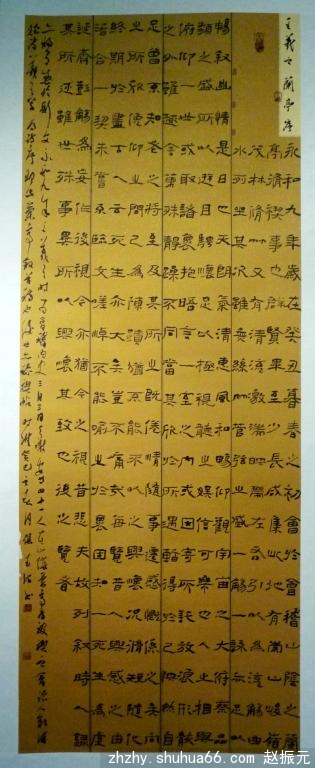 王羲之蘭亭序
永和九年歲在癸丑暮春之初會於會稽山陰之蘭
亭脩禊事也群賢畢至少長咸集此地有崇山峻嶺
茂林脩竹又有清流激湍映帶左右引以為流觴曲
水列坐其次雖無絲竹管弦之盛一觴一詠亦足以
暢敘幽情是日也天朗氣清惠風和暢仰觀宇宙之大俯察品
類之盛所以遊目騁懷足以極視聽之娛信可樂也夫人之相與
俯仰一世或取諸懷抱晤言一室之內或因寄所託放浪形骸
之外雖趣舍萬殊靜躁不同當其欣於所遇暫得於己快然自
足曾不知老之將至及其所之既倦情隨事遷感慨係之矣向
之所欣俛仰之間已為陳跡猶不能不以之興懷況脩短隨化
終期於盡古人云死生亦大矣豈不痛哉每覽昔人興感之由
若合一契未嘗不臨文嗟悼不能喻之於懷固知一死生為虛
誕齊彭殤為妄作後之視今亦猶今之視昔悲夫故列敘時人錄
其所述雖世殊事異所以興懷其致一也後之覽者
zhzhy.shuhua66.com 赵振元